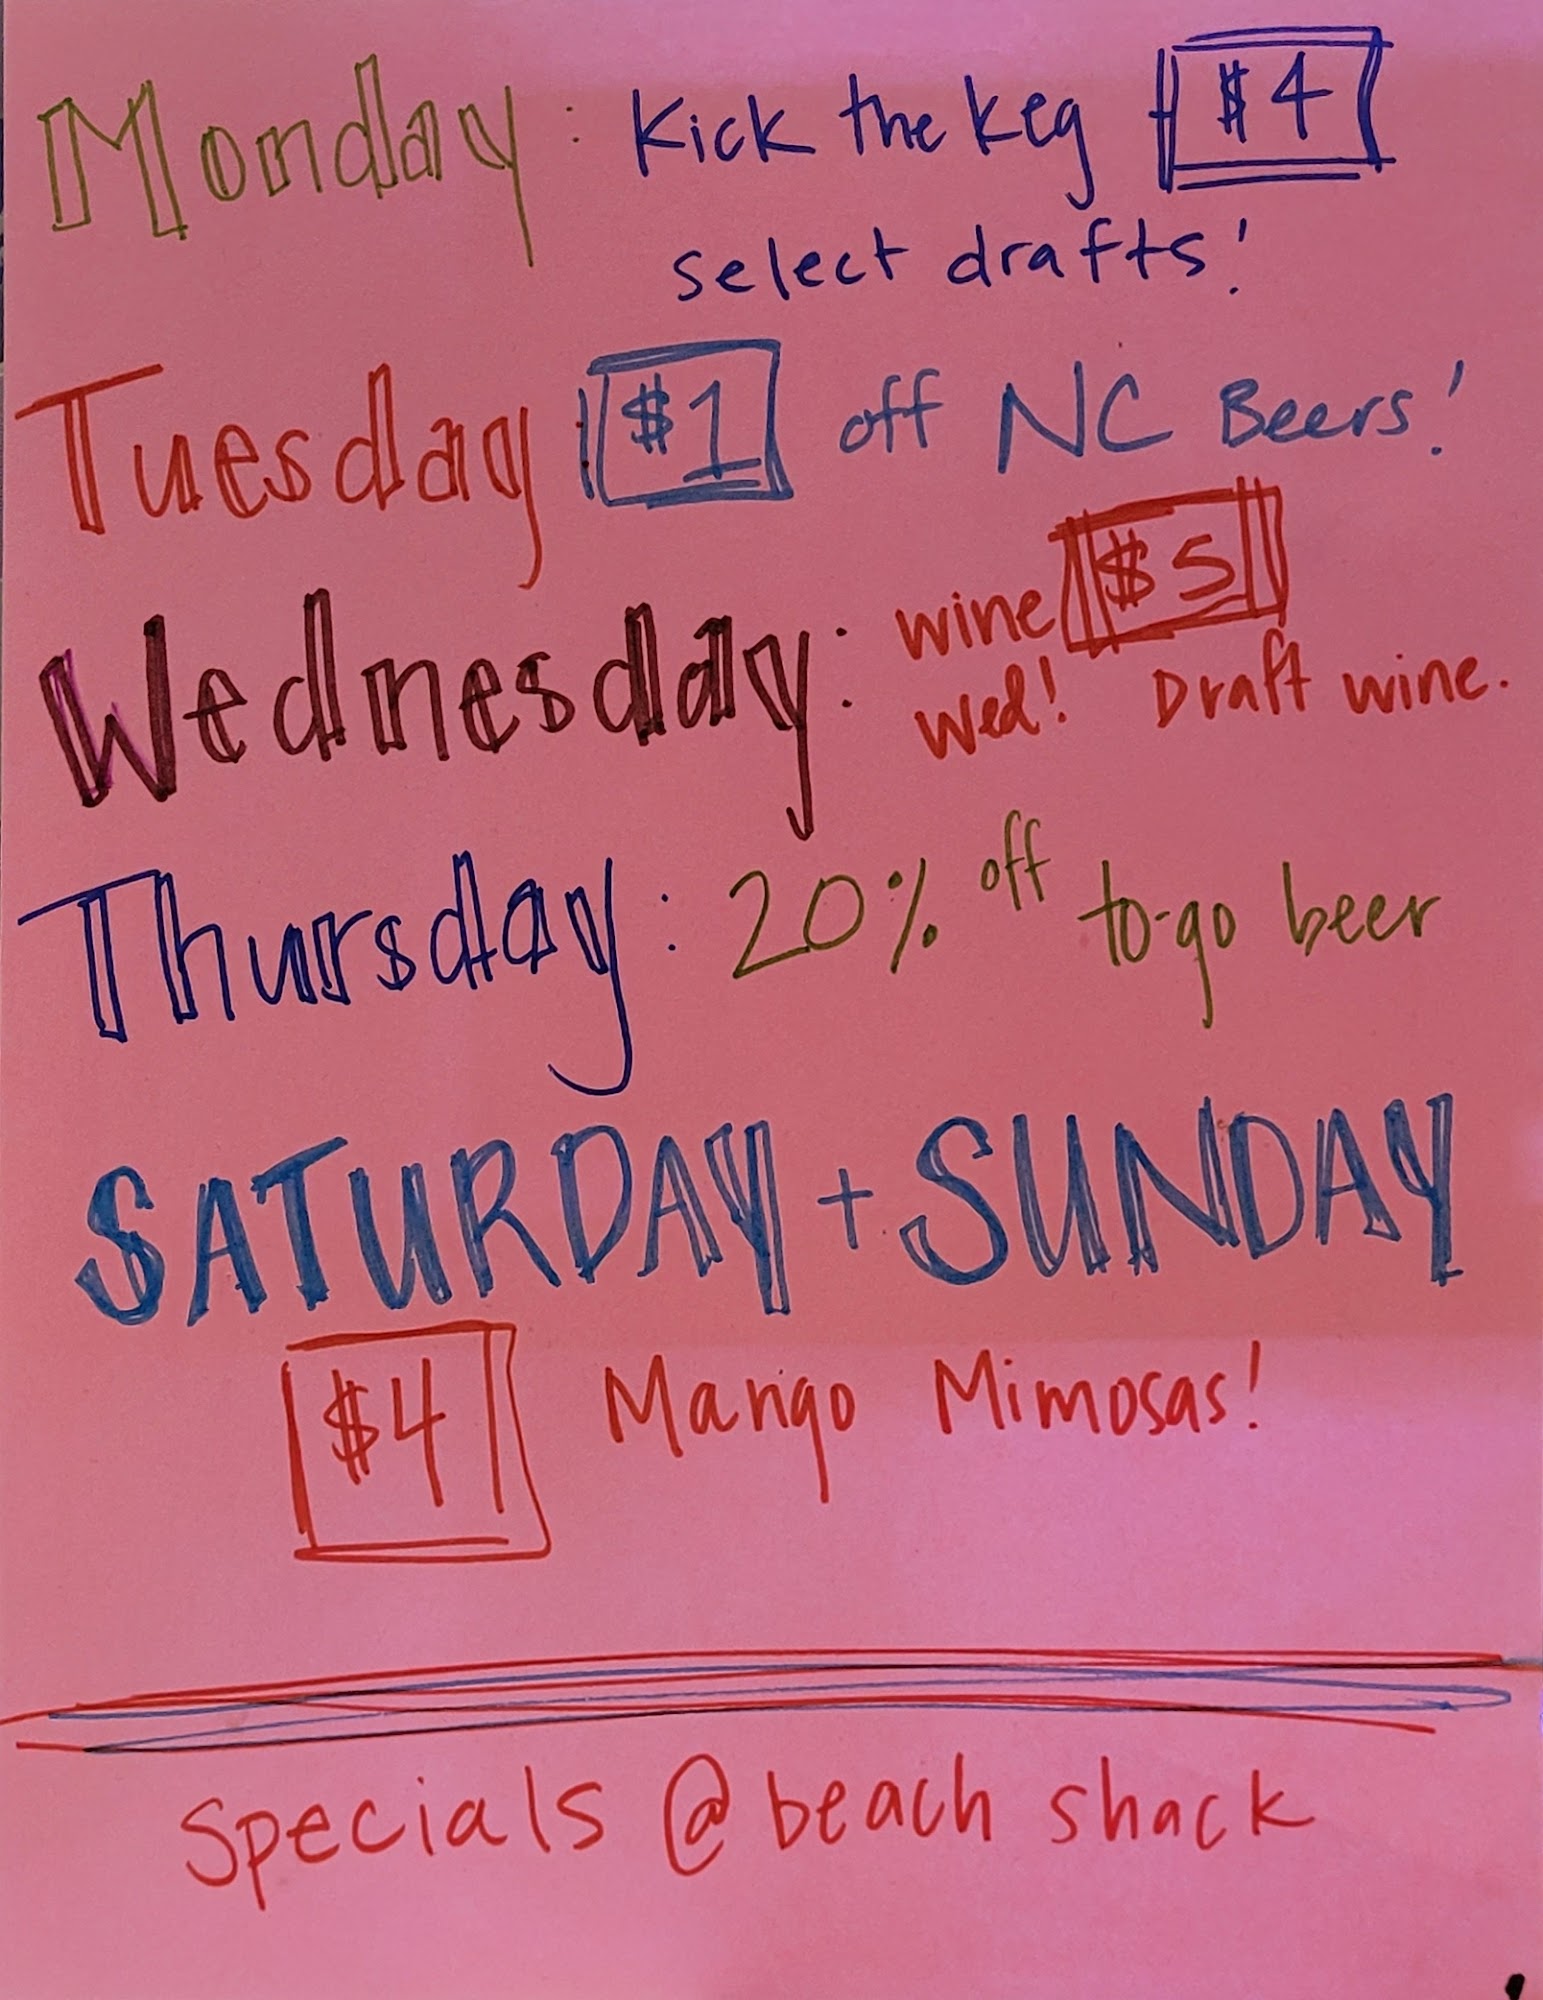 Monday: Kick the Keg $4
select drafts!
Tuesday: $1 off NC Beers!
Wednesday: wine $5
wed! Draft wine.
Thursday: 20% off to-go beer
SATURDAY + SUNDAY
$4 Mango Mimosas!
Specials @ beach shack